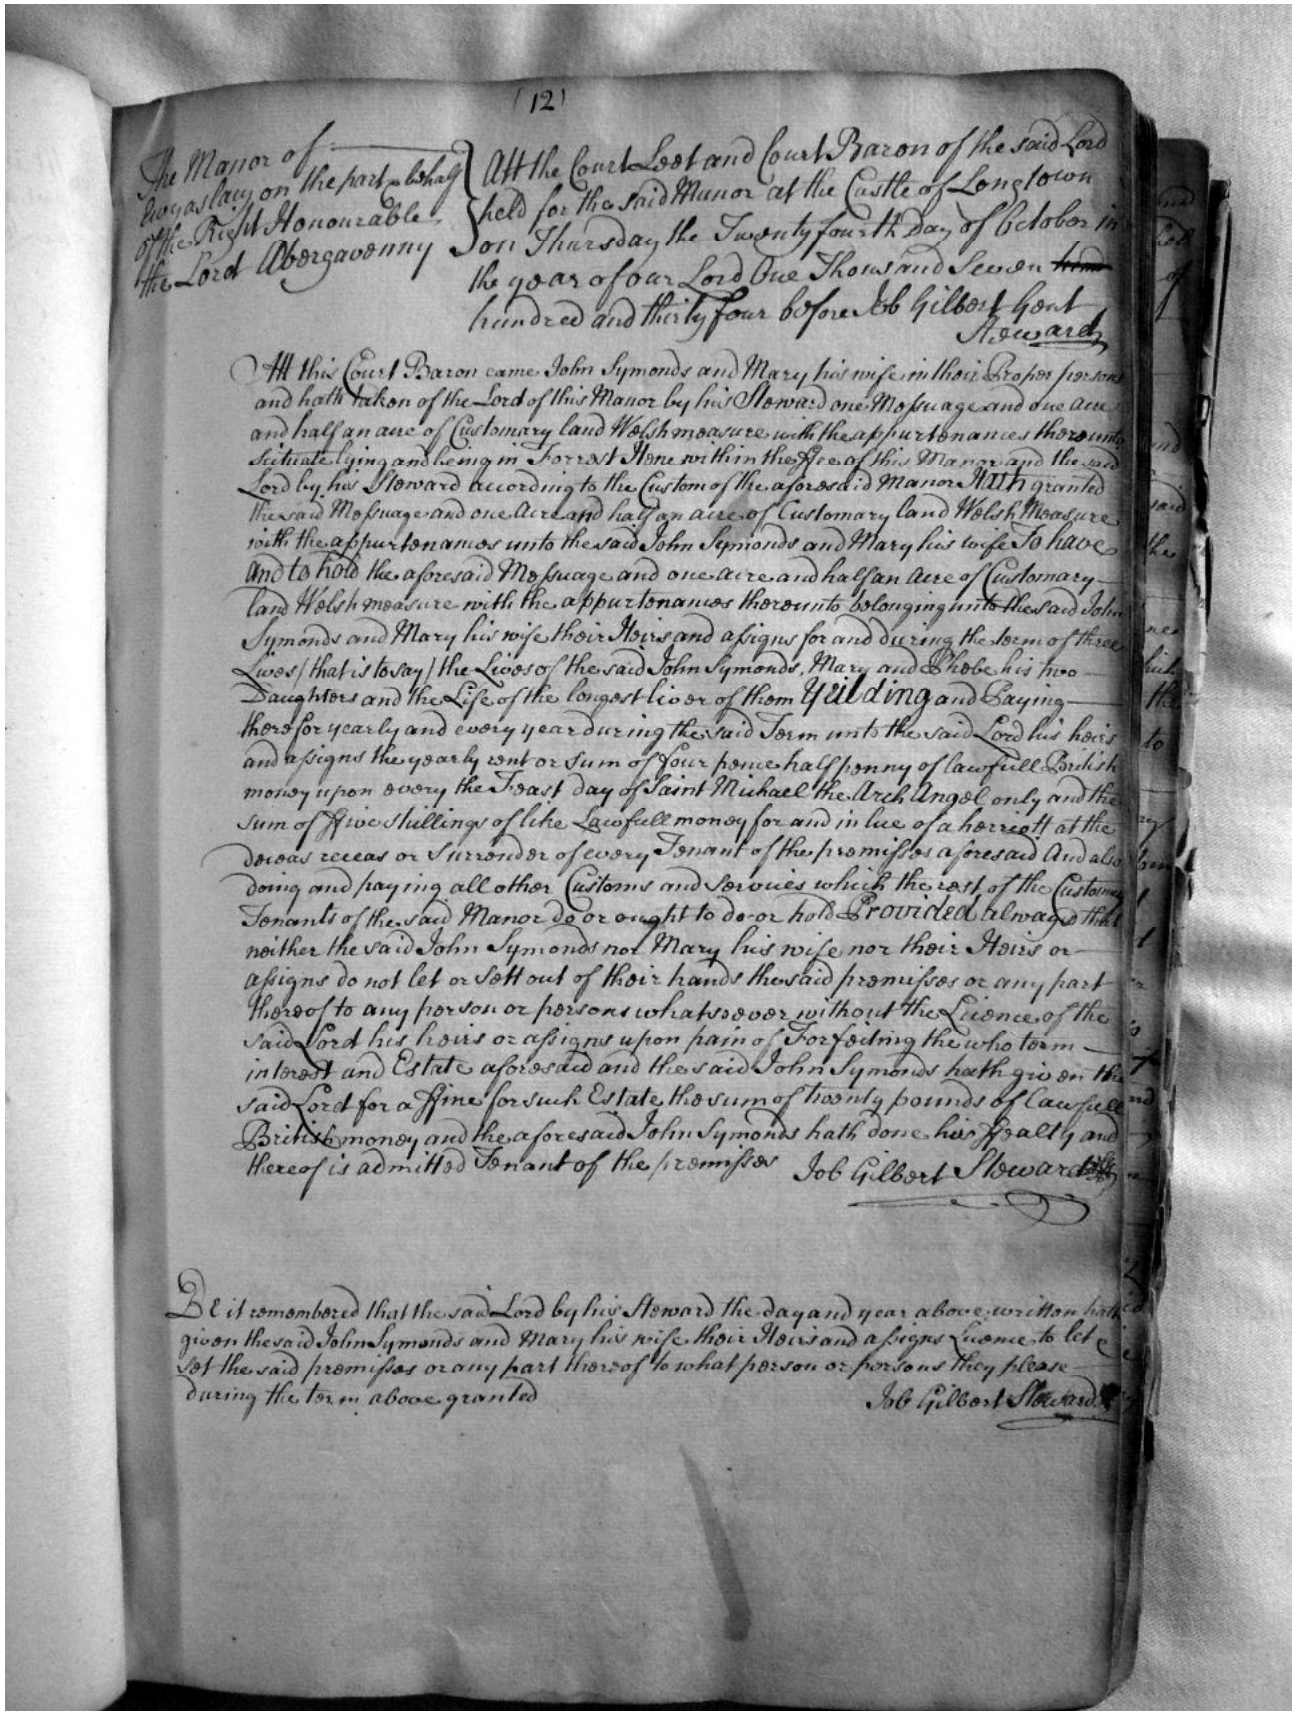 (12)
The Manor of
Ewyas lacy on the part & behalf
of the Right Honourable
the Lord Abergavenny
Att the Court Leet and Court Baron of the said Lord
held for the said Manor at the Castle of Longtown
on Thursday the Twenty fourth Day of October in
the year of our Lord One Thousand Seven
hundred and thirty four before Job Gilbert Gent
Steward
Att this Court Baron came John Symonds and Mary his wife in their Proper persons
and hath taken of the Lord of this Manor by his Steward one Messuage and one acre
and half an acre of Customary land Welsh measure with the appurtenances thereunto
scituate lying and being in Forrest Hene within the ffee of this Manor and the said
Lord by his Steward according to the Custom of the aforesaid Manor Hath granted
the said Messuage and one Acre and half an acre of Customary land Welsh Measure
with the appurtenances unto the said John Symonds and Mary his wife To have
and to hold the aforesaid Messuage and one acre and half an Acre of Customary
land Welsh measure with the appurtenances thereunto belonging unto the said John
Symonds and Mary his wife their Heirs and assigns for and during the term of three
Lives (that is to say) the Lives of the said John Symonds, Mary and Phebe his two
Daughters and the Life of the longest liver of them Yeilding and Paying
therefor yearly and every year during the said Term unto the said Lord his heirs
and assigns the yearly rent or sum of four pence half penny of lawfull British
money upon every the Feast day of Saint Michael the Arch Angel only and the
sum of ffive shillings of like Lawfull money for and in lue of a herriott at the
deceas receas or surrender of every Tenant of the premisses aforesaid And also
doing and paying all other Customs and services which the rest of the Customary
Tenants of the said Manor do or ought to do or hold Provided always that
neither the said John Symonds nor Mary his wife nor their Heirs or
assigns do not let or sett out of their hands the said premisses or any part
thereof to any person or persons whatsoever without the Licence of the
said Lord his heirs or assigns upon pain of Forfeiting the who term
interest and Estate aforesaid and the said John Symonds hath given the
said Lord for a ffine for such Estate the sum of twenty pounds of lawfull
British money and the aforesaid John Symonds hath done his ffealty and
thereof is admitted Tenant of the premisses Job Gilbert Steward
BE it remembered that the said Lord by his Steward the day and year above written hath
given the said John Symonds and Mary his wife their Heirs and assigns Licence to let
set the said premisses or any part thereof to what person or persons they please
during the term above granted
Job Gilbert Steward